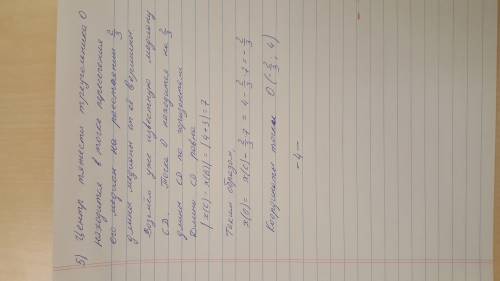 5) Центр тяжести треугольника O
находится в точке пересечения
его медиан на расстоянии 2/3
длины медианы от её вершины.
Возьмём уже известную медиану
CD. Точка O находится на 2/3
длины CD по горизонтали.
Длина CD равна
|x(C) - x(D)| = |4+3| = 7
Таким образом,
x(O) = x(C) - 2/3·7 = 4 - 2/3·7 = -2/3
Координаты точки O (-2/3; 4)
- 4 -